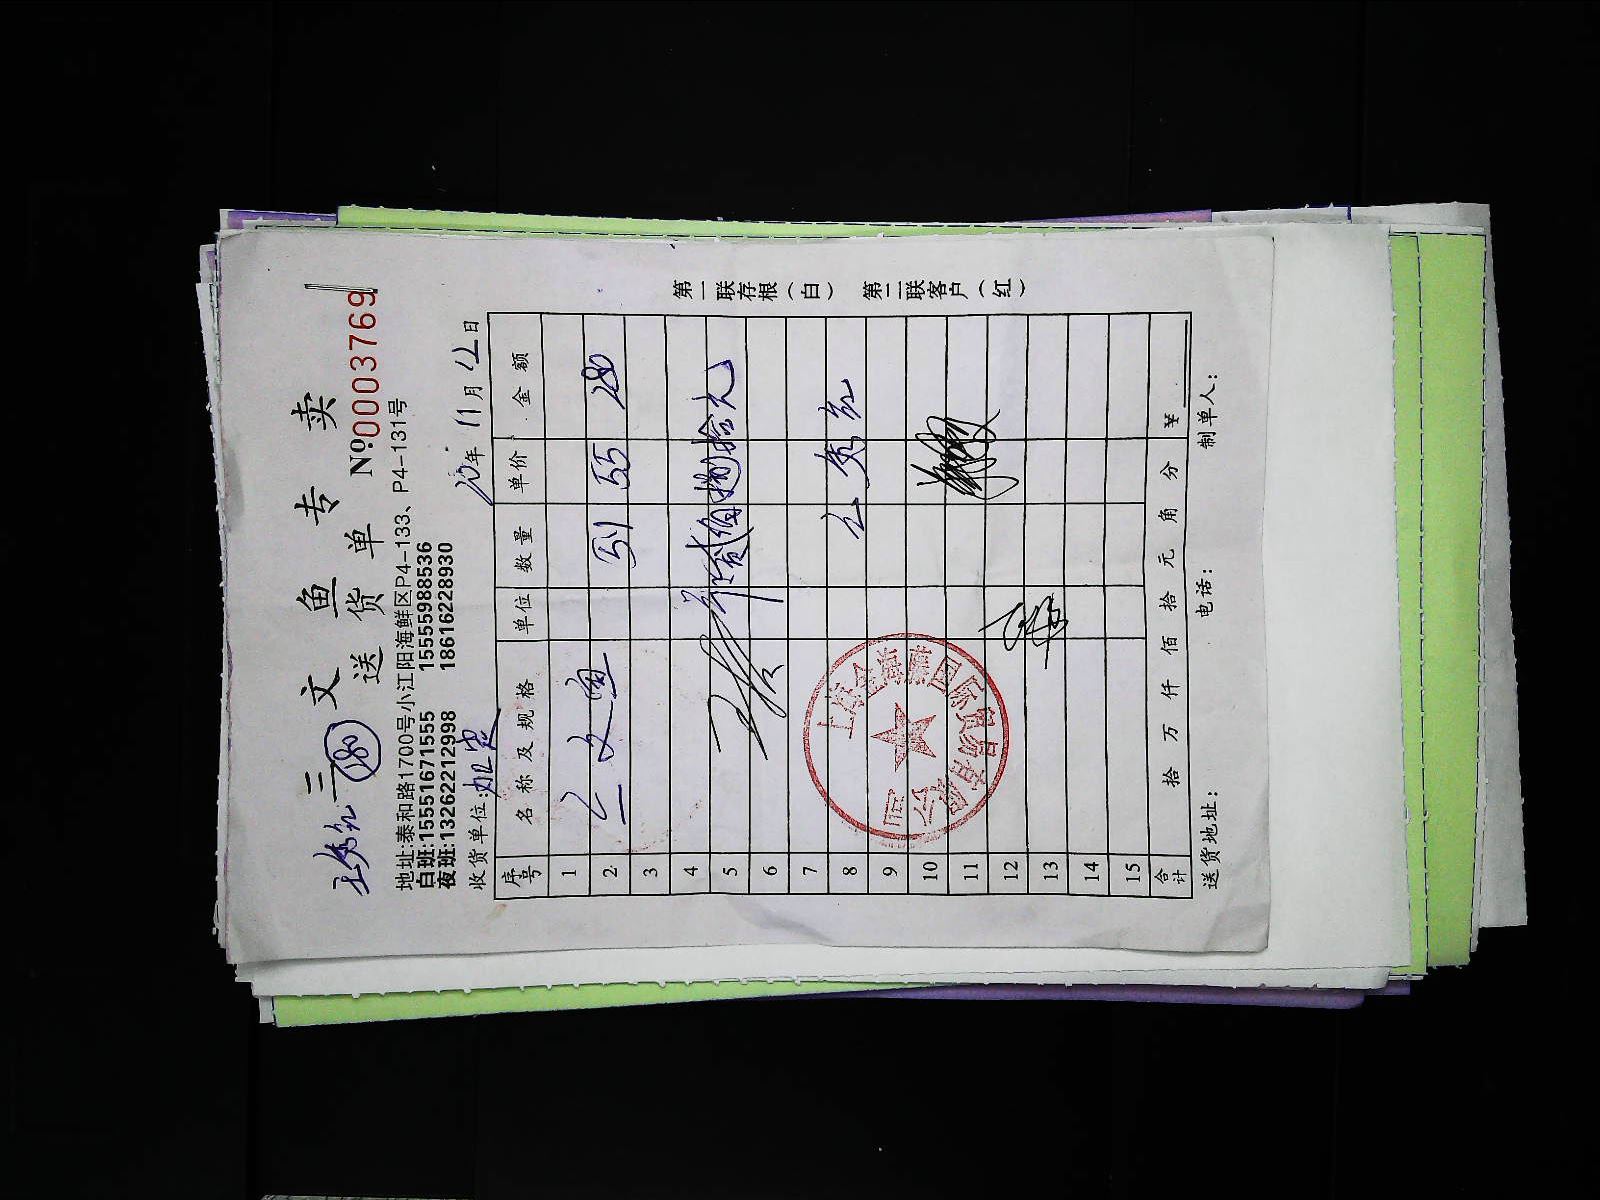 三文鱼专卖
送货单
№:00003769
280
地址:泰和路1700号小江阳海鲜区P4-133、P4-131号
白班:15551671555 15555988536
夜班:13262212998 18616228930
收货单位: 年 11 月 12 日
序号 名称及规格 单位 数量 单价 金额
1 三文鱼
2 51 55 280
3
4
5
6
7
8
9
10
11
12
13
14
15
合计 拾 万 仟 佰 拾 元 角 分 ¥
送货地址: 电话: 制单人:
第一联存根(白) 第二联客户(红)